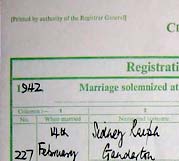 [Printed by authority of the Registrar General]
C
Registrati
1942 Marriage solemnized at
Columns:— 1 2
No. When married Name and surname
14th Sidney
227 February Ganderton